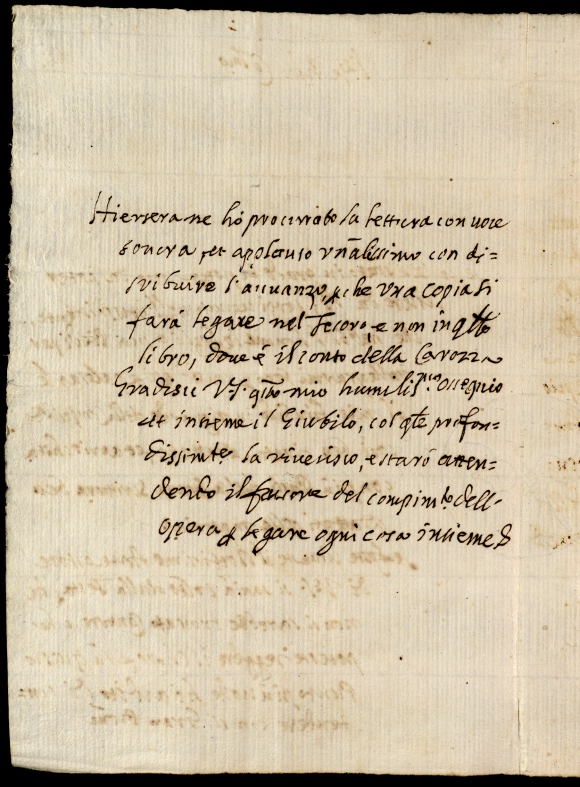 Hiersera ne hò procurato la lettura con voce
sonora, et aplauso vn̄alissimo con di=
stribuire l'auuanzo, ꝑche vna copia si
farà legare nel Tesoro, e non in qῡto
libro, doue è il conto della Carozza
Gradisci V.S. qῡto mio humiliss.mo ossequio
et insieme il Giubilo, col qle profon=
dissimte la riuerisco, e starò atten=
dendo il fauore del compimto dell'
opera ꝑ legare ogni cosa insieme